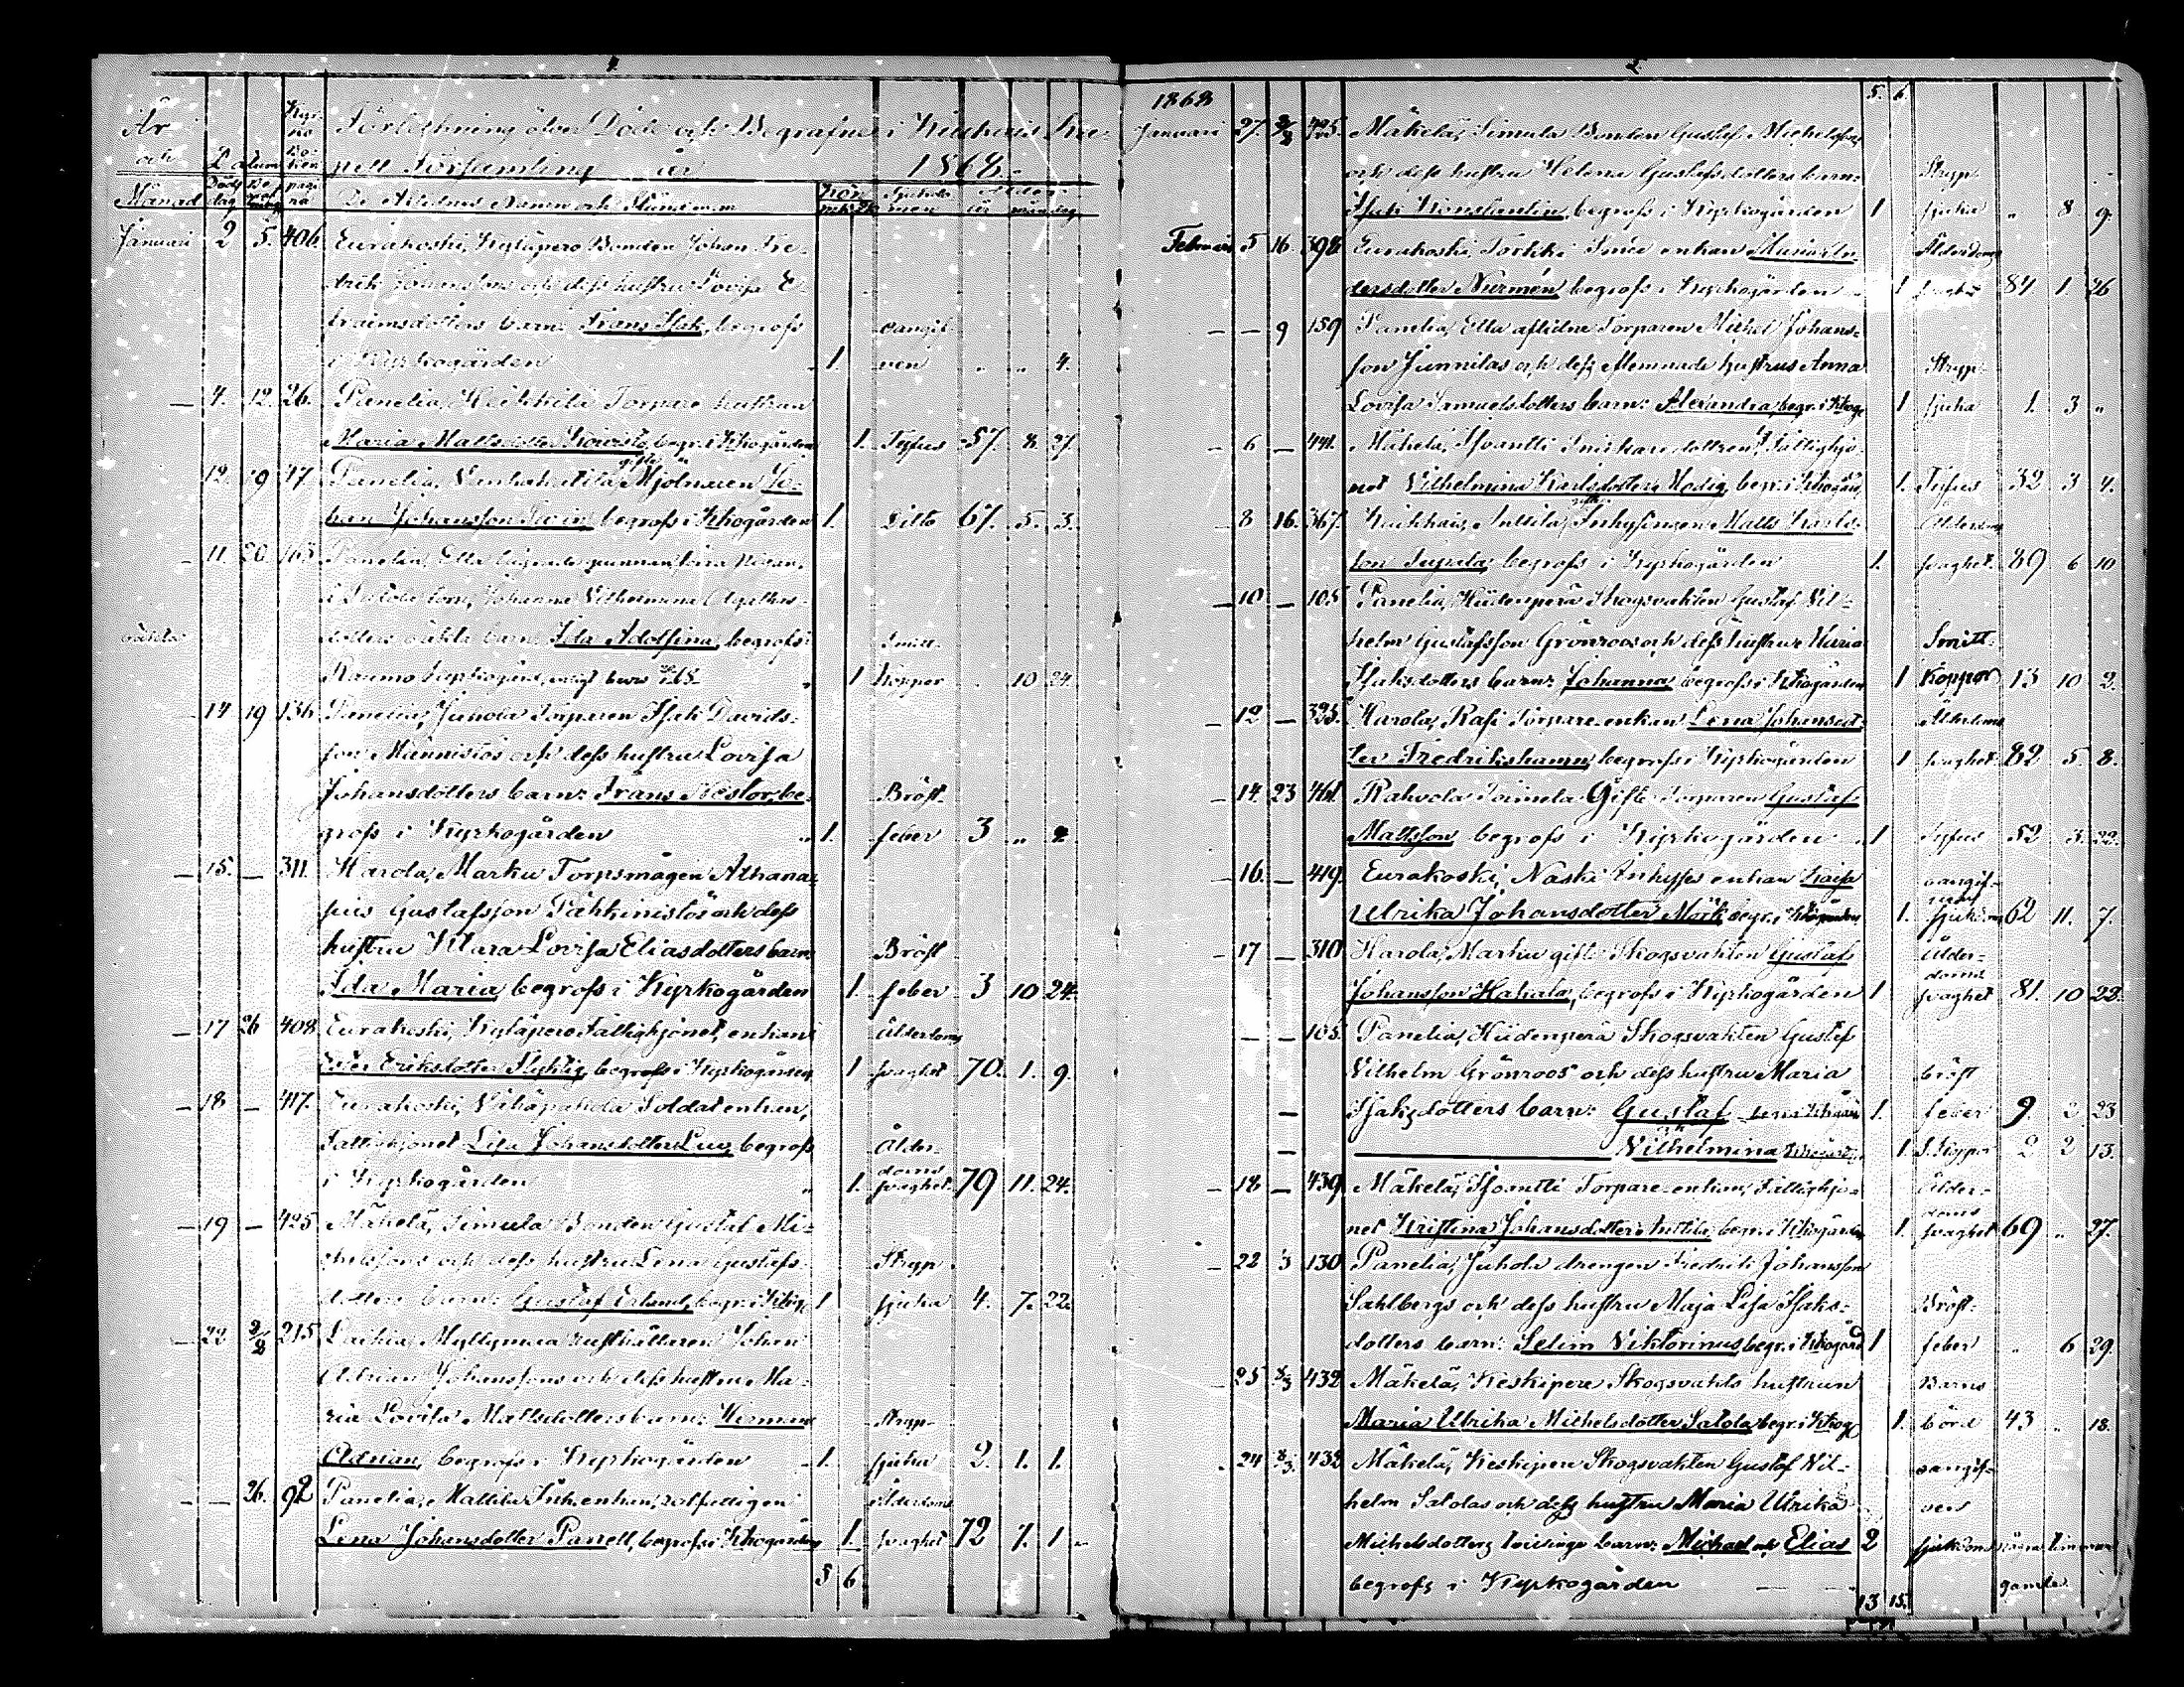 1.
År och Månad Datum Dödsdag Begrafning Kyrkobokens pagina
Förteckning öfver Döde och Begrafne i Kiukais Ka-
pell Församling år 1868.
De Aflidnes Namn och Stånd Kön mk. qk. Sjukdomen Ålder år mån. dag.
Januari 2 5. 406. Eurakoski, Kyläpero Bonden Johan Fre-
drik Johanssons och dess hustru Lovisa E-
fraimsdotters barn: Frans Isak, begrofs oangif-
i Kyrkogården 1. ven „ „ 4.
— 7. 12. 26. Panelia, Heikkilä Torpare hustrun
Maria Mattsdotter begr. i Kkogården 1. Tyfus 57. 8. 27.
12. 19 47 Panelia, gifte Mjölnaren Jo-
han Johansson begrofs i Kkogården 1. Ditto 67. 5. 3.
— 11. 20. 165. Panelia, Ella
Johanna Vilhelmina
oäkta dotters oäkta barn Ida Adolfina, begrofs i Smitt-
Raumo Kyrkogård, 1 koppor „ 10 24.
— 14 19 136. Panelia, Juhola Torparen Isak Davids-
son Männistös och dess hustru Lovisa
Johansdotters barn: Frans Nestor, be- Bröst-
grofs i Kyrkogården „ 1. feber 3 „
— 15. — 311. Harola, Marku Torpsmågen Athana-
sius Gustafsson Pähkinistös och dess
hustru Klara Lovisa Eliasdotters barn Bröst
Ida Maria, begrofs i Kyrkogården 1. feber 3 10 24.
— 17 26 408. Eurakoski, Kyläpero Fattighjonet, enkan Ålderdoms
Eriksdotter begrofs i Kyrkogården 1 svaghet 70. 1. 9.
— 18 — 417. Eurakoski, Soldat enkan,
Fattighjonet Lisa Johansdotter begrofs Ålder-
i Kyrkogården „ 1. doms svaghet 79 11. 24.
— 19 — 425 Mäkelä, Simula Bonden Gustaf Mi-
chelssons och dess hustru Lena Gustafs- Stryp-
dotters barn: Gustaf Erland, begr. i Kkog. 1 sjuka 4. 7. 22.
— 22 2/2 215 Laihia, Myllymaa Rusthållaren Johan
Adrian Johanssons och dess hustru Ma-
ria Lovisa Mattsdotters barn: Herman Stryp-
Adrian, begrofs i Kyrkogården 1. sjuka 2. 1. 1.
— — 26. 92 Panelia, Mattila Inh. enkan, Ålderdoms
Lena Johansdotter Panell, begrofs i Kkogården 1. svaghet 72 7. 1
5 6.
2.
1868 5. 6.
Januari 27. 2/2 425. Mäkelä, Simula Bonden Gustaf Michelssons
och dess hustru Helena Gustafsdotters barn: Stryp-
Isak Konstantin, begrofs i Kyrkogården 1 sjuka „ 8 9.
Februari 5 16. 398 Eurakoski, Torkki Smed enkan Maria An- Ålderdoms
dersdotter Nurmen, begrofs i Kyrkogården 1 svaghet 84. 1. 26
— — 9 159 Panelia, Ella aflidne Torparen Michel Johans-
son Junnilas och dess efterlemnade hustrus Anna Stryp-
Lovisa Samuelsdotters barn: Alexandra, begr. i Kkog. 1 sjuka 1. 3 „
— 6 — 441. Mäkelä, Isoantti Snickaredottren, Fattighjo-
net Vilhelmina Karlsdotter Modig, begr. i Kkogård 1. Tyfus 32 3 4.
— 8 16. 367. Kiukais, Anttila, gifte Inhysingen Matts Karls- Ålderdoms
son begrofs i Kyrkogården 1. svaghet. 89 6 10
— 10 — 105 Panelia, Hiidenperä Skogsvakten Gustaf Vil-
helm Gustafsson Grönroos och dess hustrus Maria Smitt-
Isaksdotters barn: Johanna begrofs i Kkogården 1 Koppor 13 10 2.
— 12 — 325. Harola, Rasi Torpare enkan Lena Johansdot- Ålderdoms
ter Fredrikshamn, begrofs i Kyrkogården 1 svaghet 82 5 8.
— 14. 23 461. Rahvola Toimela Gifte Torparen Gustaf
Mattsson begrofs i Kyrkogården „ 1 Tyfus 52 3. 22.
— 16. — 419. Eurakoski, Naski Inhyses enkan Kaisa oangif-
Ulrika Johansdotter Mörk begr. i Kkogården 1. sjukdom 62 11. 7.
— 17 — 310 Harola, Marku gifte Skogsvakten Gustaf Ålder-
Johansson Hakala, begrofs i Kyrkogården 1 doms svaghet 81. 10 22.
— — 105. Panelia, Hiidenperä Skogsvakten Gustaf
Vilhelm Grönroos och dess hustru Maria bröst
— Isaksdotters barn: Gustaf 1. feber 9. 2 23
— Vilhelmina 1 S. Koppor 2 2 13.
— 18 — 439 Mäkelä, Isoantti Torpare enkan, Fattighjo- Ålder-
net Kristina Johansdotter Anttila, begr. i Kkogården 1. doms svaghet 69 „ 27.
— 22 3 130 Panelia, Juhola drengen Fredrik Johansson
Sahlbergs och dess hustru Maja Lisa Isaks- Bröst-
dotters barn: Selim Viktorinus, begr. i Kkogård 1 feber „ 6 29.
23 432 Mäkelä, Keskipere Skogsvakts hustrun Barns
Maria Ulrika Michelsdotter Salola, begr. i Kkog. 1. börd 43 „ 18.
24 432 Mäkelä, Keskipere Skogsvakten Gustaf Vil- oangif-
helm Salolas och dess hustru Maria Ulrika ven
Michelsdotters tvillinge barn: Michael och Elias 2 sjukdom några timmar
begrofs i Kyrkogården gamla.
13 15.